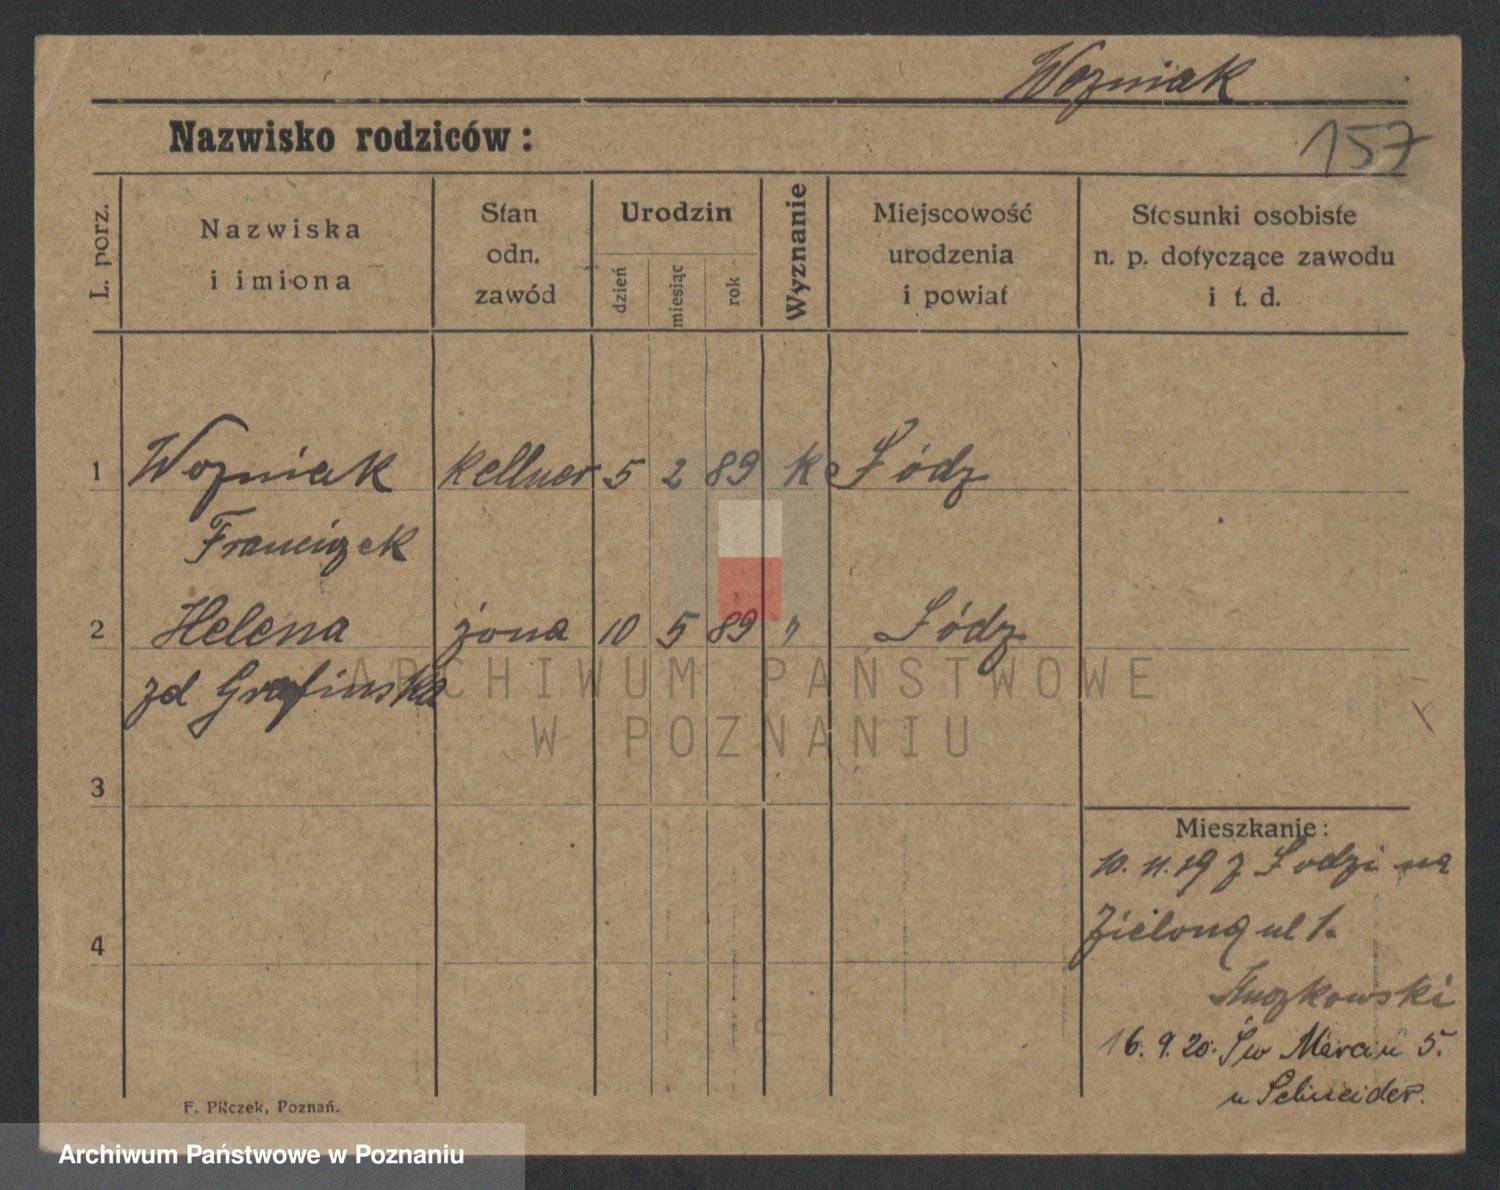 Wozniak
157
Nazwisko rodziców:
L. porz.
Nazwiska
i imiona
Stan
odn.
zawód
Urodzin
dzień
miesiąc
rok
Wyznanie
Miejscowość
urodzenia
i powiat
Stosunki osobiste
n. p. dotyczące zawodu
i t. d.
1 Wozniak Kellner 5 2 89 K Łódz
Franciszek
2 Helena żona 10 5 89 " Łódz
zd Grafinska
ARCHIWUM PAŃSTWOWE
W POZNANIU
3
Mieszkanie:
10. 11. 19 z Łodzi na
Zieloną ul 1.
4
16. 9. 20. Św Marcin 5.
u Schneider.
F. Pilczek, Poznań.
Archiwum Państwowe w Poznaniu